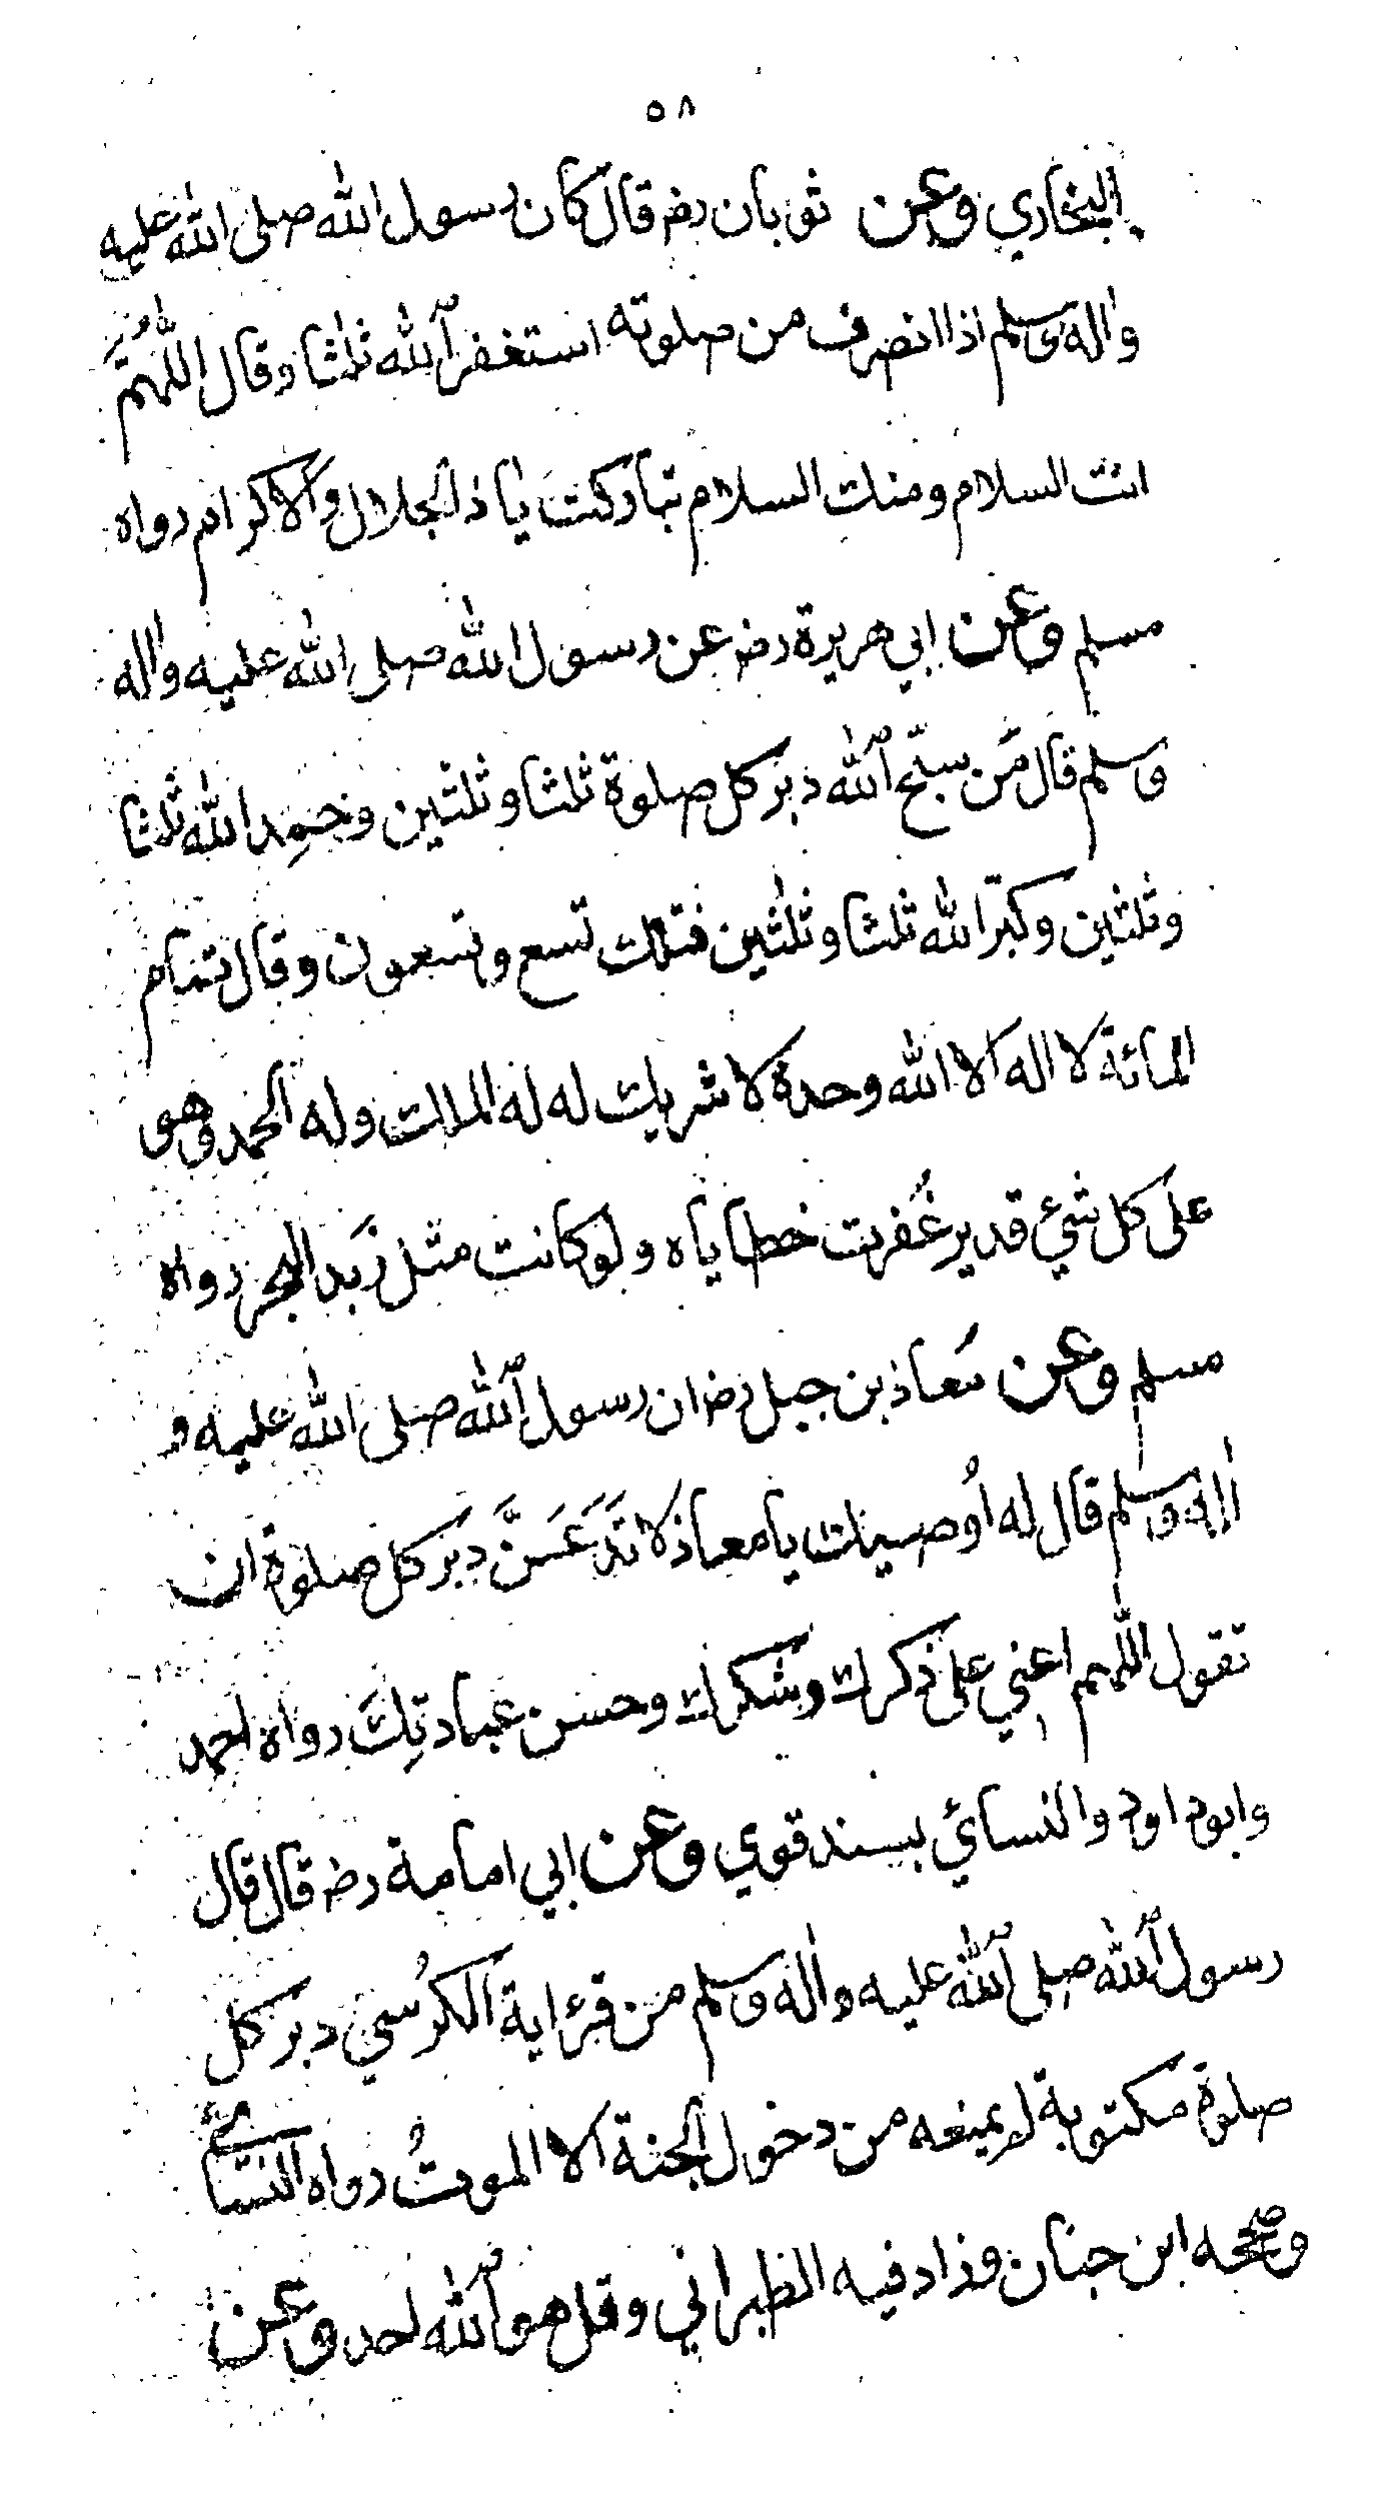 ٥٨
البخاري وعن ثوبان رضـ قال كان رسول الله صلى الله عليه
واله وسلم اذا انصرف من صلوته استغفر الله ثلثا وقال اللّٰهُمَّ
انت السلام ومنك السلام تباركت يا ذالجلال والاكرام رواه
مسلم وعن ابي هريرة رضـ عن رسول الله صلى الله عليه واله
وسلم قال مَن سبّح الله دبر كل صلوة ثلثا وثلثين وحمِد الله ثلثا
وثلثين وكبّر الله ثلثا وثلثين فتلك تسع وتسعون وقال تمام
المائة لا اله الا الله وحدة لا شريك له له الملك وله الحمد وهو
على كل شيء قدير غُفرت خطاياه ولو كانت مثل زَبد البحر رواه
مسلم وعن مُعاذ بن جبل رضـ ان رسول الله صلى الله عليه و
اله وسلم قال له اُوصيك يا معاذ لا تَدَعَنَّ دبر كل صلوة ان
تقول اللهم اعني على ذكرك وشكرك وحسن عبادتِكَ رواه احمد
وابوداود والنسائي بسند قوي وعن ابي امامة رضـ قال قال
رسول الله صلى الله عليه واله وسلم من قرء اية الكرُسي دبر كل
صلوة مكتوبة لم يمنعه من دخول الجنة الا الموتُ رواه النسائي
وصححه ابن حبان وزاد فيه الطبراني وقل هو الله احد وعن